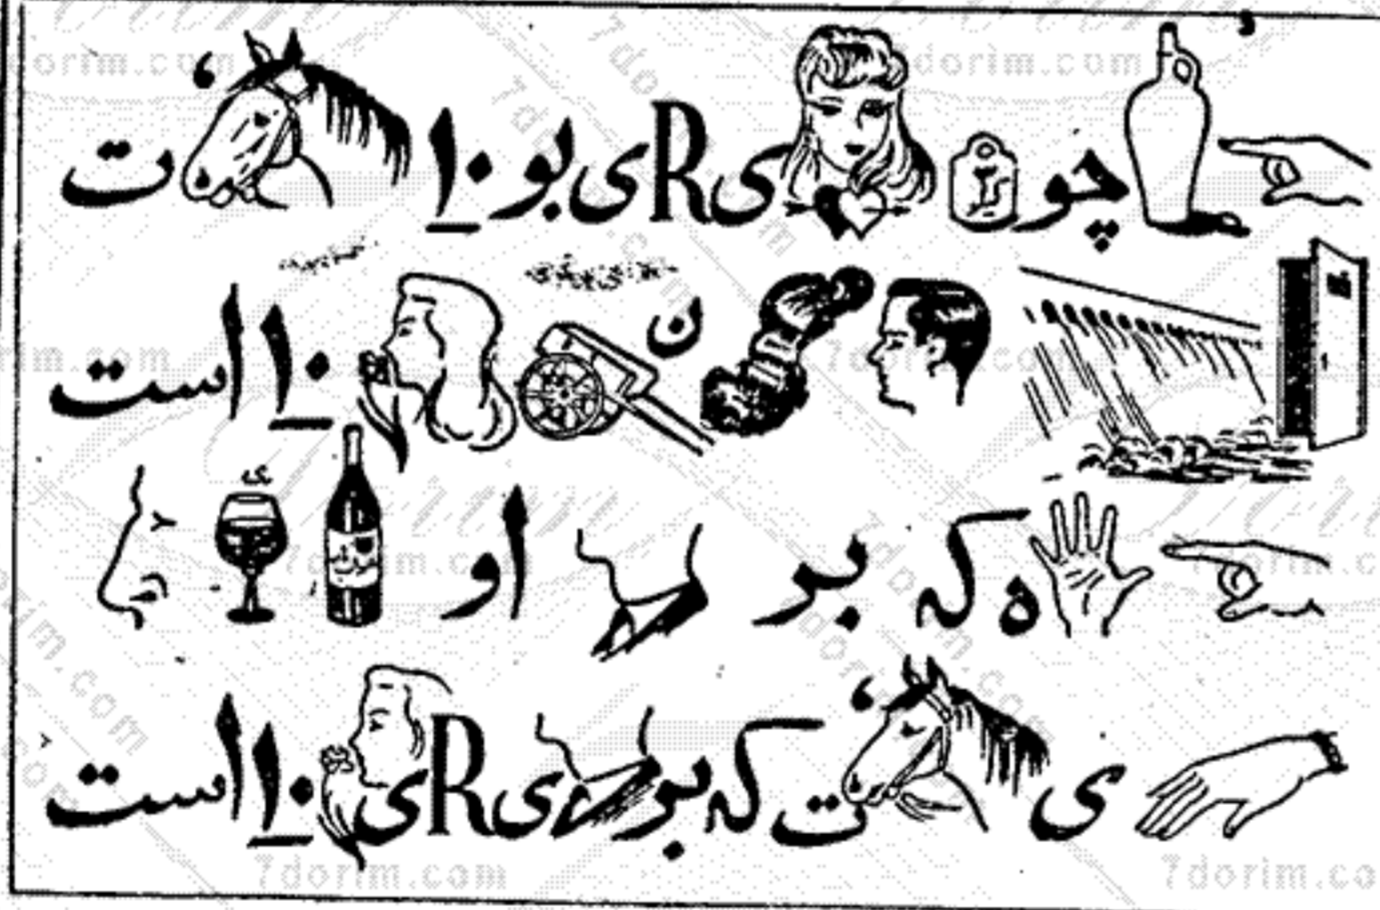 چو ی R ی بو ۱۰ ت
ن ۱۰ است
ه که بر او ی
ی ت که بر ی R ی ۱۰ است
7dorim.com